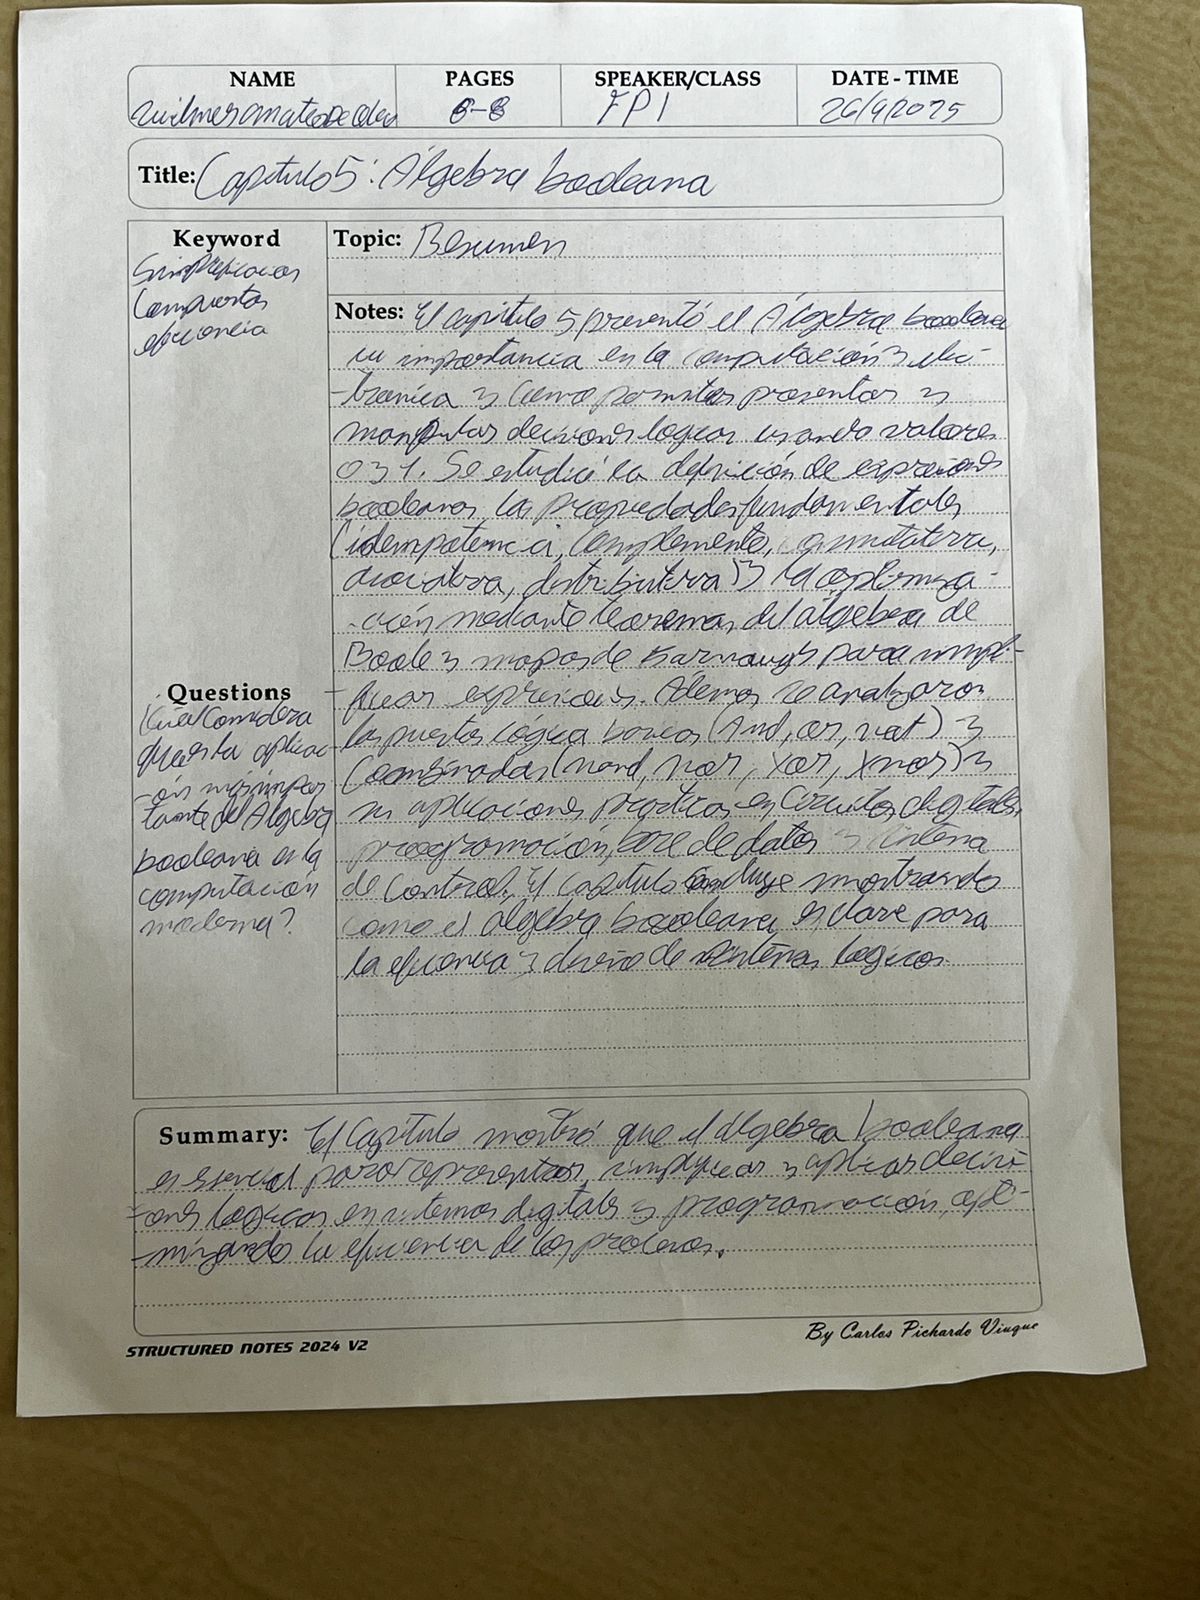 NAME PAGES SPEAKER/CLASS DATE - TIME
6-8 FP1 26/9/2025
Title: Capitulo 5: Álgebra booleana
Keyword
Simplificacion
Compuertas
eficiencia
Topic: Resumen
Notes: El capitulo 5 presentó el Álgebra booleana
su importancia en la computación y elec-
-tronica y como permite presentar y
manipular decisiones logicas usando valores
0 y 1. Se estudió la definición de expresiones
booleanas, las propiedades fundamentales
(idempotencia, complemento, conmutativa,
asociativa, distributiva) y la optimiza-
-ción mediante teoremas del álgebra de
Boole y mapas de Karnaugh para simpli-
-ficar expresiones. Ademas se analizaron
las puertas lógica basicas (And, or, not) y
Combinadas (nand, nor, xor, xnor) y
su aplicaciones practicas en Circuitos digitales,
programación, base de datos y sistema
de Control. El capitulo concluye mostrando
como el álgebra booleana es clave para
la eficiencia y diseño de sistemas logicos
Questions
Cual Considera
que es la aplicac-
-ión mas impor
tante del Álgebra
booleana en la
computación
moderna?
Summary: El Capítulo mostró que el algebra booleana
es esencial para representar, simplificar y aplicar decisi-
-ones logicas en sistemas digitales y programación, opti-
-mizando la eficiencia de los procesos.
STRUCTURED NOTES 2024 V2
By Carlos Pichardo Viuque